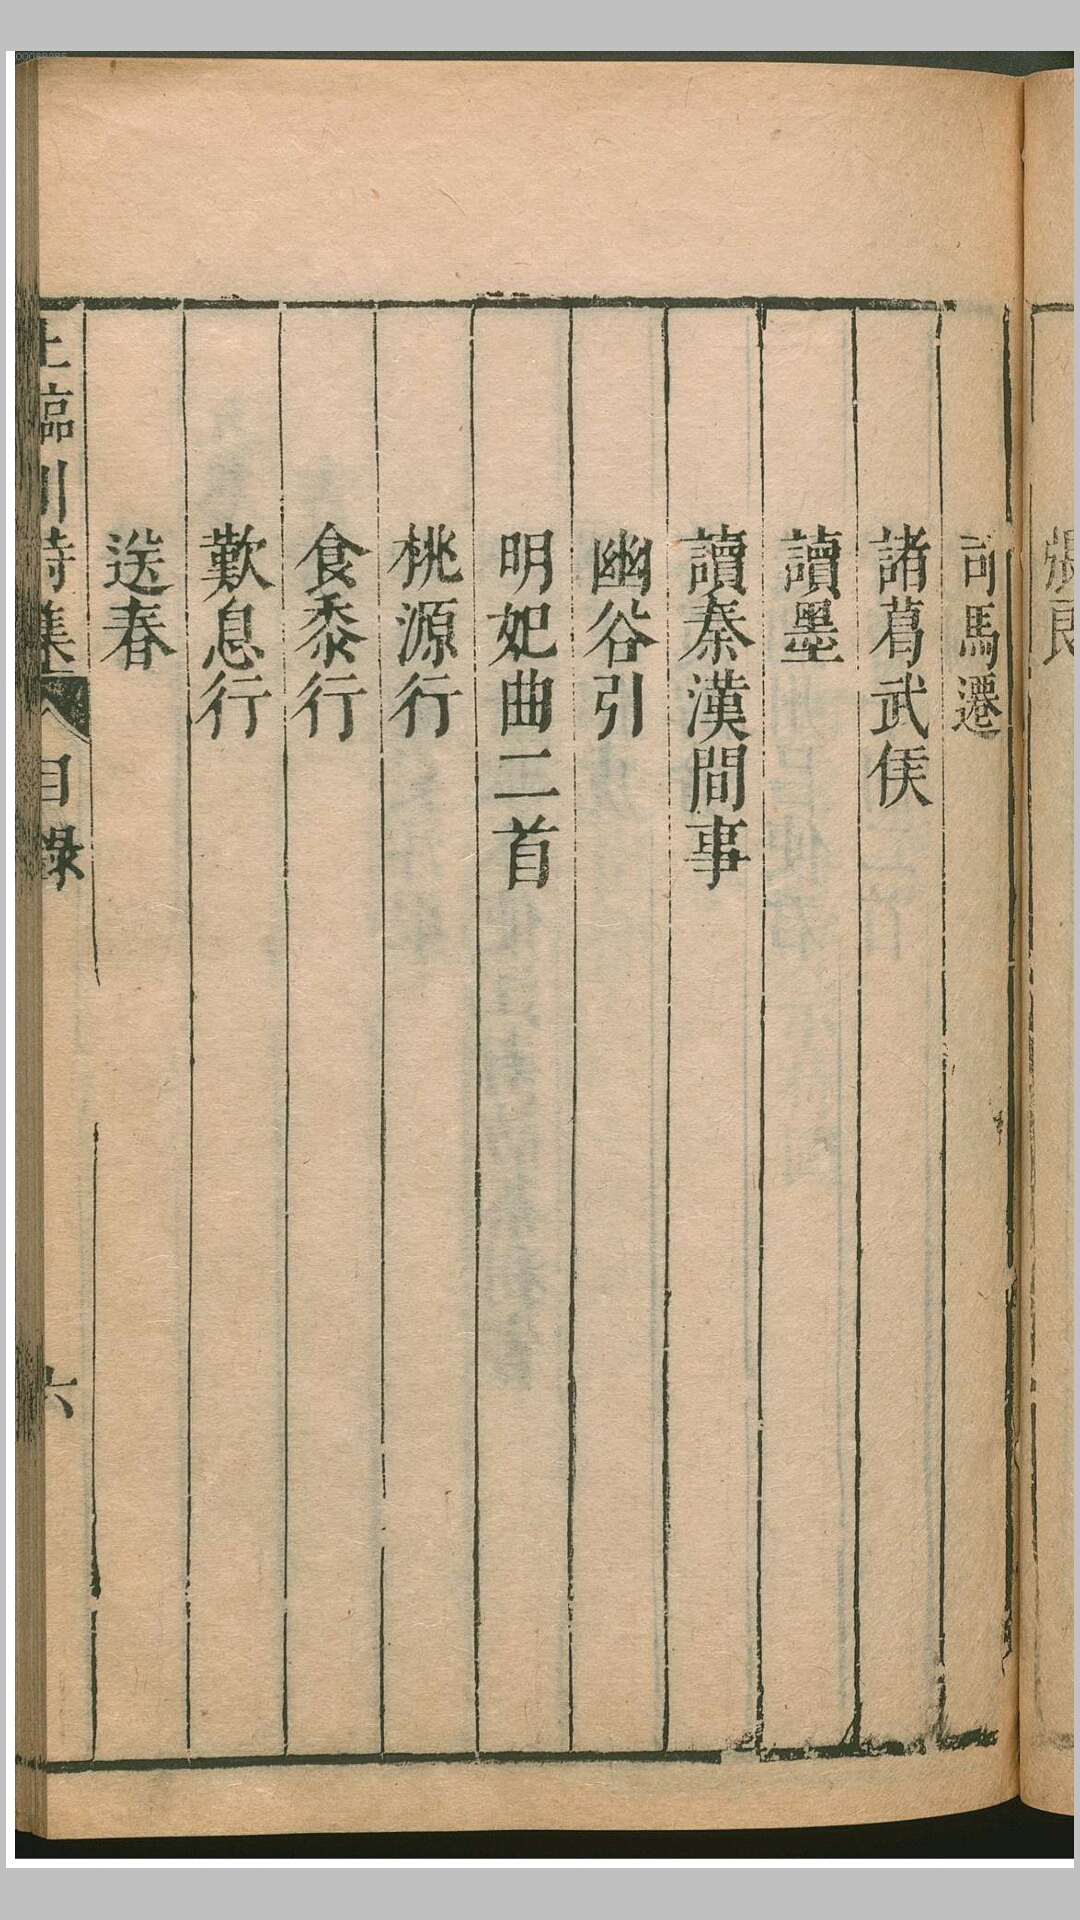 張良
司馬遷
諸葛武侯
讀墨
讀秦漢間事
幽谷引
明妃曲二首
桃源行
食黍行
歎息行
送春
王臨川詩集 目錄 六